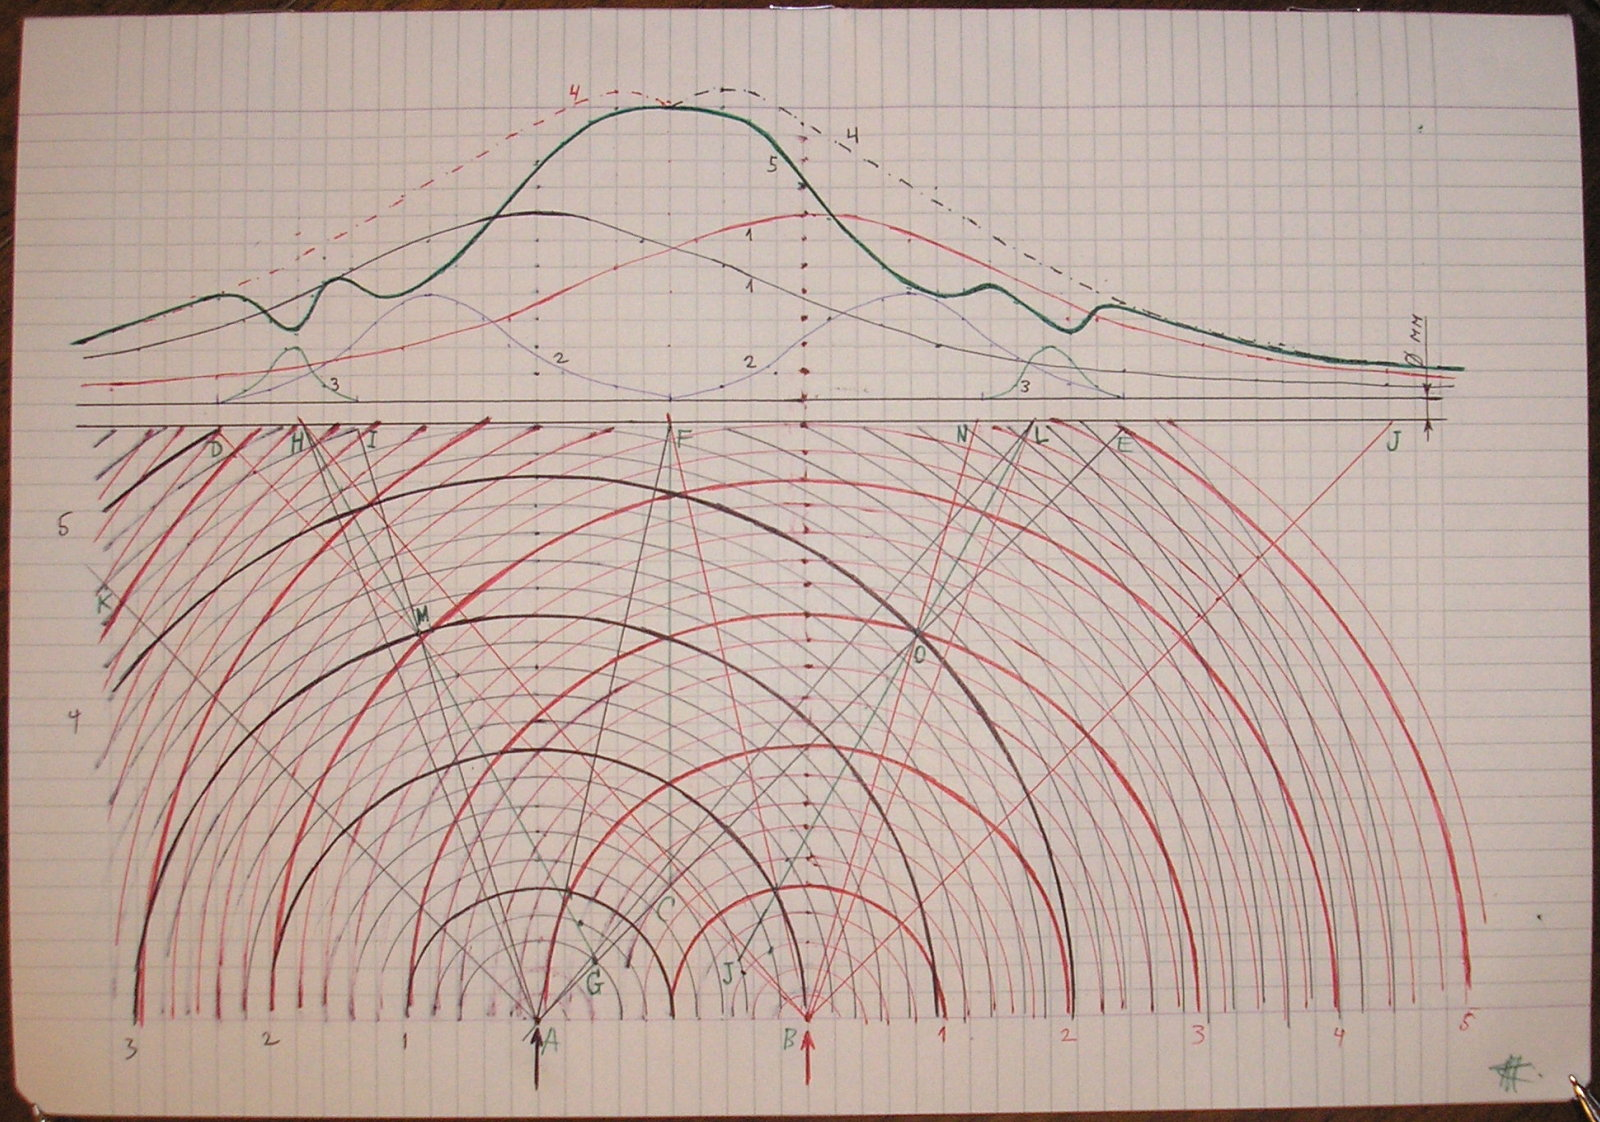 4
4
5
1
1
2
2
3
3
Ø мм
D H I F N L E J
5
K
M
O
4
C
G J
A B
3 2 1 1 2 3 4 5